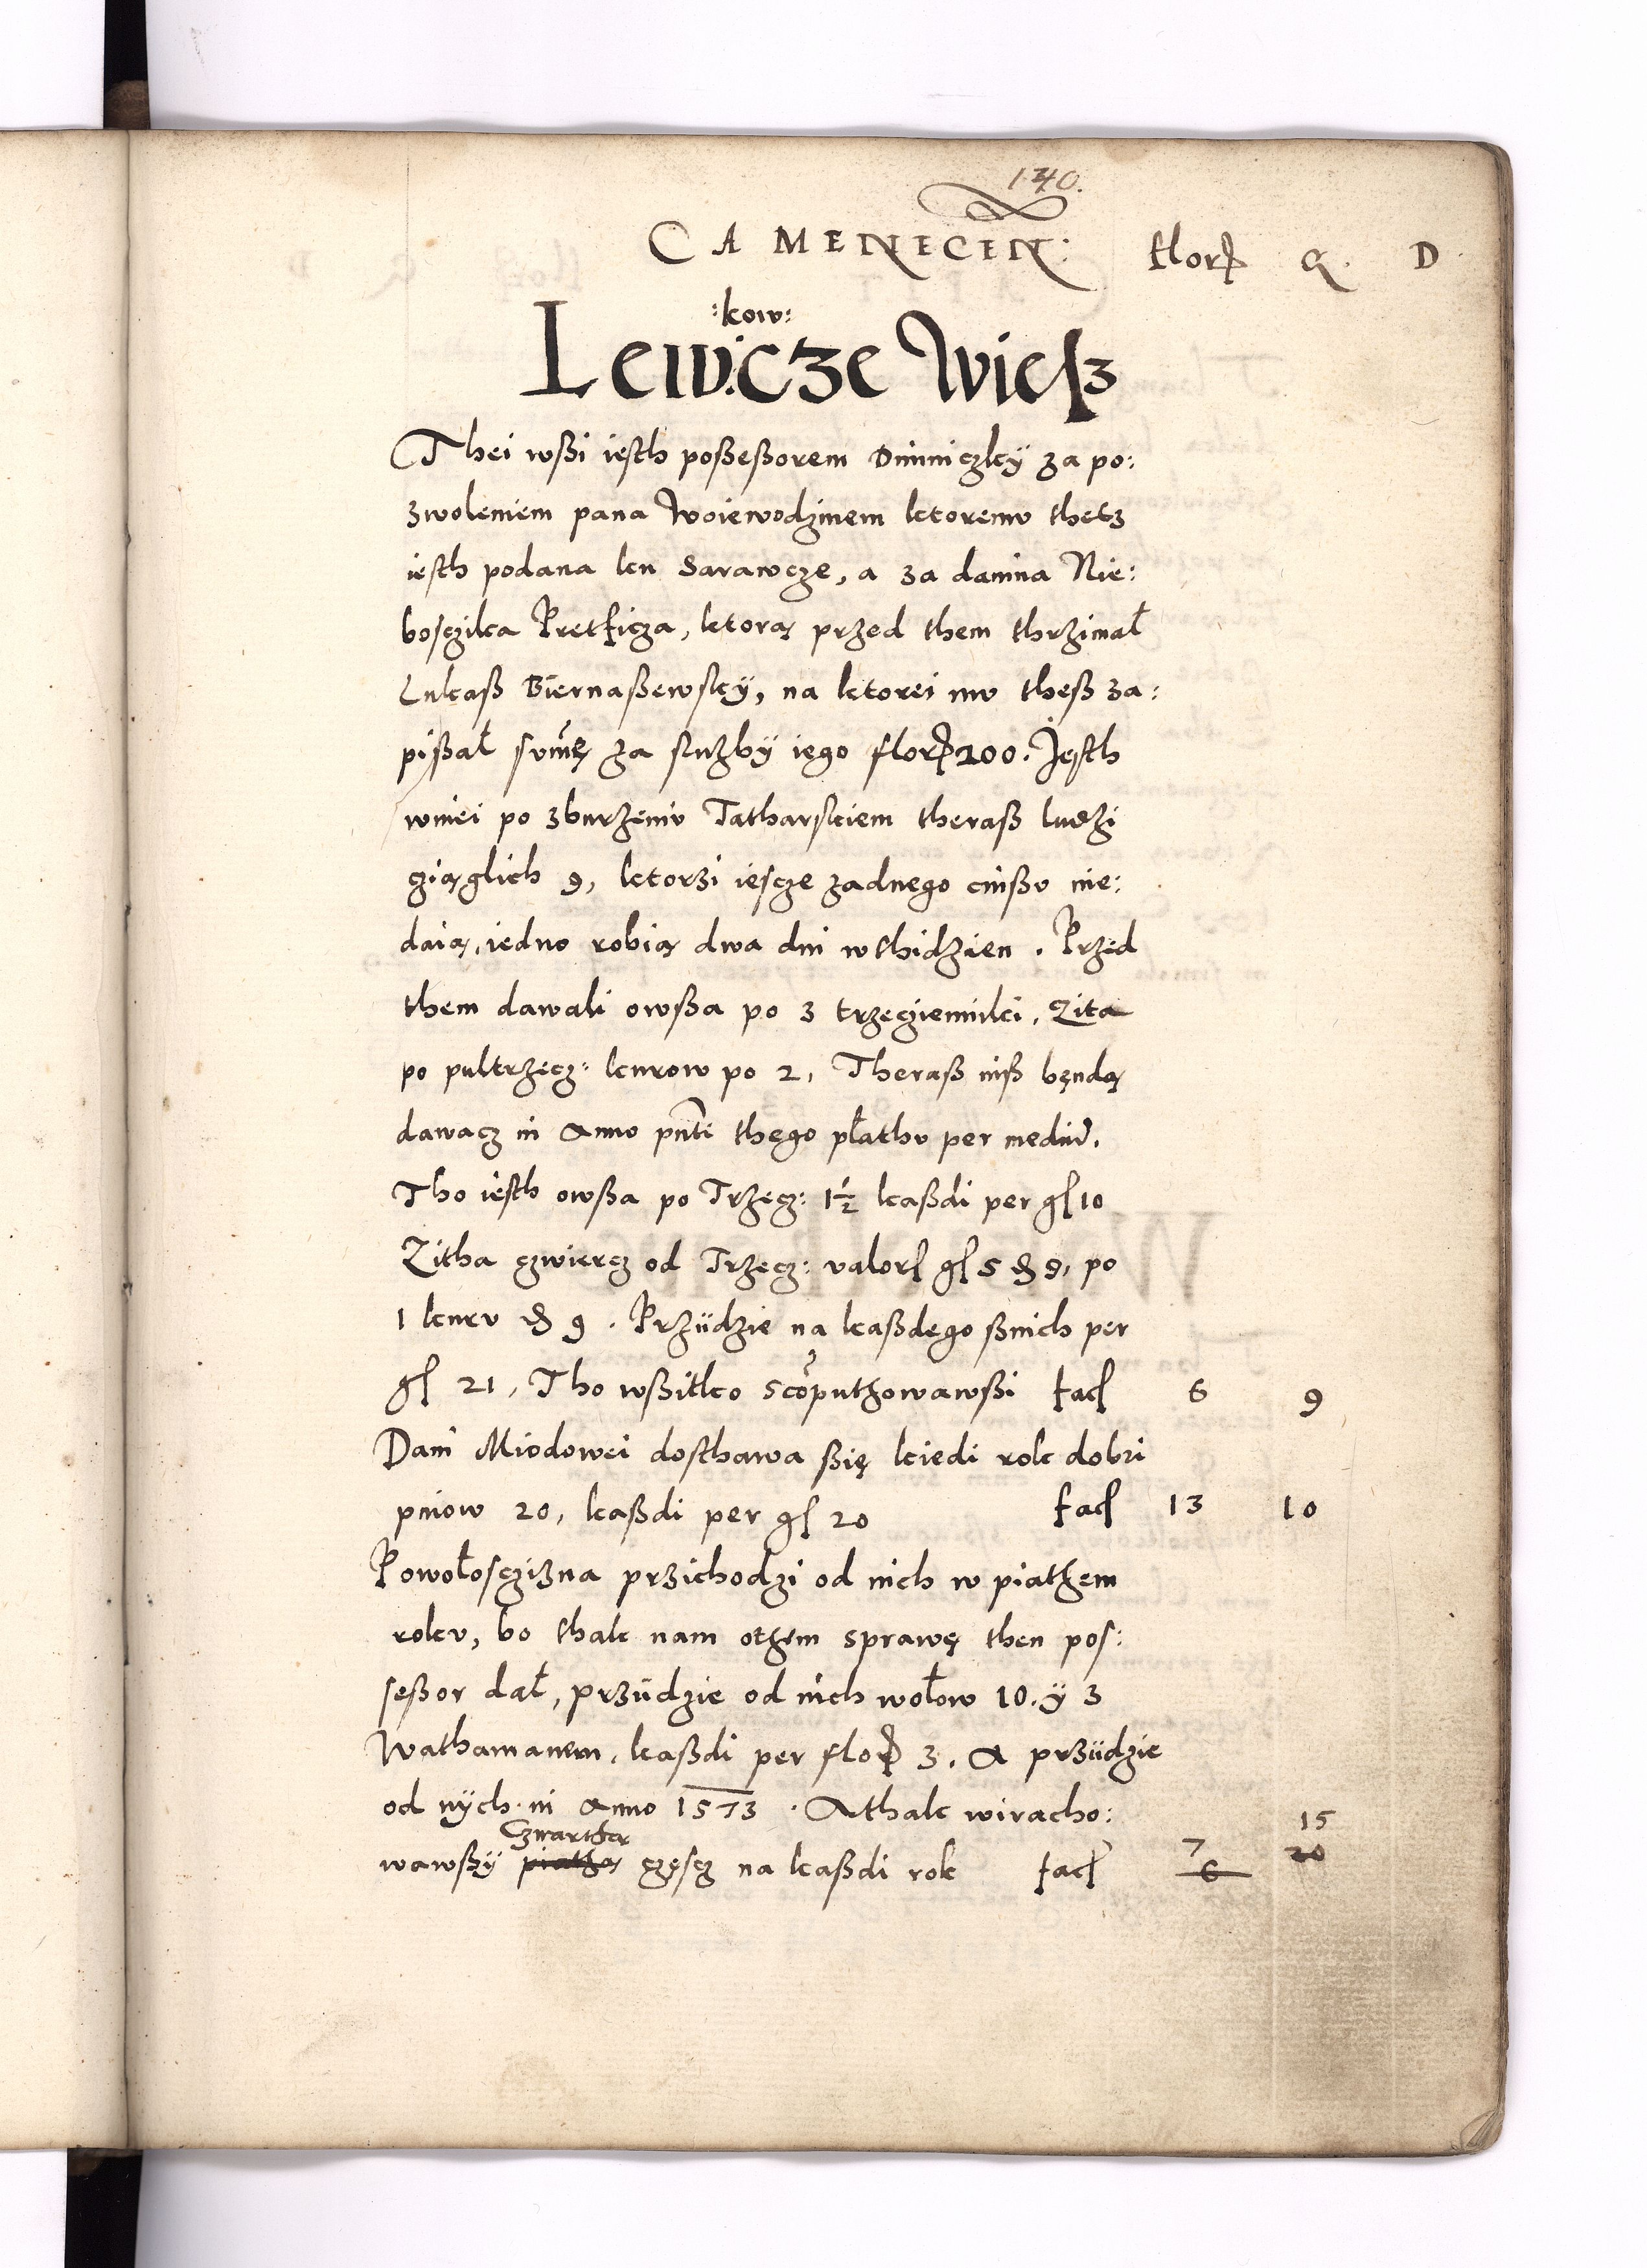 140.
CAMENECEN: flor G. D
:kow:
Lewicze Wiesz
Thei wßi iesth poßeßorem Dminiczky za po:
zwoleniem pana Woiewodzinem ktoremv thetz
iesth podana kn Sarawcze, a za danina Nie:
bosczika Pretficza, ktorą przed them thrzimał
Lukaß Biernaßewsky, na ktorei mv theß za:
pißał svmę za sluzbÿ iego flor 200. Jesth
wniei po zburzeniv Tatharskiem theraß ludzi
cziąglich 9, ktorzi iescze zadnego cinßv nie:
daią, iedno robią dwa dni w thidzien. Przed
them dawali owßa po 3 trzecziemiki, Zita
po pultrzecz: kurow po 2, Theraß niß bęndą
dawacz in Anno pnti thego płathv per mediu.
Tho iesth owßa po Trzecz: 1½ kaßdi per gł 10
Zitha czwiercz od Trzecz: valor gł 5 ₰ 9, po
1 kurv ₰ 9. Przÿdzie na kaßdego ßnich per
gł 21, Tho wßitko scoputhowawßi fac 6 9
Dani Miodowei dosthawa ßię kiedi rok dobri
pniow 20, kaßdi per gł 20 fac 13 10
Powołosczizna przichodzi od nich w piathem
rokv, bo thak nam othem sprawę then pos:
seßor dał, przÿdzie od nich wołow 10. ÿ 3
Wathamanem, kaßdi per flo 3. A przÿdzie
od nÿch in Anno 1573. Athak wiracho: 15
Czwarthą 7
wawßÿ piathą częscz na kaßdi rok fac 6 20